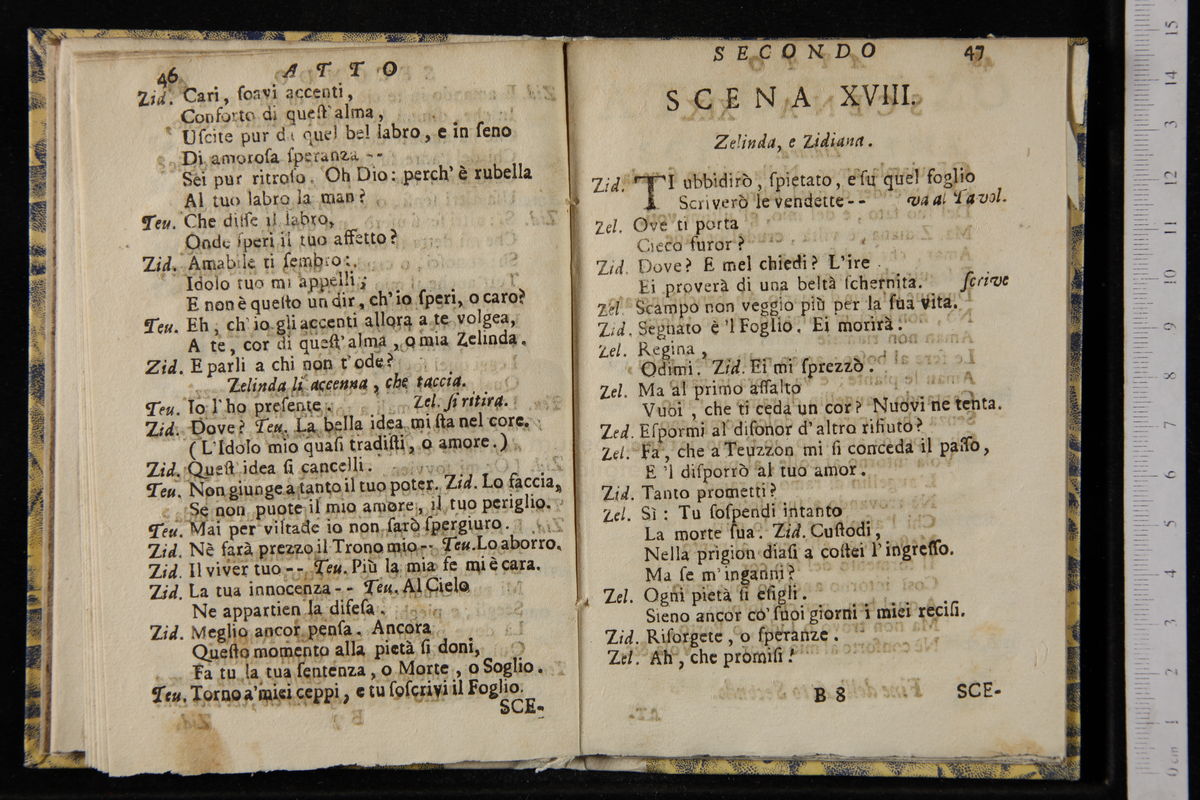 46 ATTO
Zid. Cari, ſoavi accenti,
Conforto di queſt'alma,
Uſcite pur da quel bel labro, e in ſeno
Di amoroſa ſperanza --
Sei pur ritroſo. Oh Dio: perch' è rubella
Al tuo labro la man?
Teu. Che diſſe il labro,
Onde ſperi il tuo affetto?
Zid. Amabile ti ſembro:
Idolo tuo mi appelli;
E non è queſto un dir, ch'io ſperi, o caro?
Teu. Eh, ch'io gli accenti allora a te volgea,
A te, cor di queſt'alma, o mia Zelinda.
Zid. E parli a chi non t'ode?
Zelinda li accenna, che taccia.
Teu. Io l'ho preſente. Zel. ſi ritira.
Zid. Dove? Teu. La bella idea mi ſta nel core.
(L'Idolo mio quaſi tradiſti, o amore.)
Zid. Queſt'idea ſi cancelli.
Teu. Non giunge a tanto il tuo poter. Zid. Lo faccia,
Se non puote il mio amore, il tuo periglio.
Teu. Mai per viltade io non ſarò ſpergiuro.
Zid. Nè ſarà prezzo il Trono mio-- Teu. Lo aborro.
Zid. Il viver tuo -- Teu. Più la mia fe mi è cara.
Zid. La tua innocenza -- Teu. Al Cielo
Ne appartien la difeſa.
Zid. Meglio ancor penſa. Ancora
Queſto momento alla pietà ſi doni,
Fa tu la tua ſentenza, o Morte, o Soglio.
Teu. Torno a'miei ceppi, e tu ſoſcrivi il Foglio.
SCE-
SECONDO 47
SCENA XVIII.
Zelinda, e Zidiana.
Zid. TI ubbidirò, ſpietato, e ſu quel foglio
Scriverò le vendette -- va al Tavol.
Zel. Ove ti porta
Cieco furor?
Zid. Dove? E mel chiedi? L'ire
Ei proverà di una beltà ſchernita. ſcrive
Zel. Scampo non veggio più per la ſua vita.
Zid. Segnato è 'l Foglio. Ei morirà.
Zel. Regina,
Odimi. Zid. Ei mi ſprezzò.
Zel. Ma al primo aſſalto
Vuoi, che ti ceda un cor? Nuovi ne tenta.
Zed. Eſpormi al diſonor d'altro rifiuto?
Zel. Fa, che a Teuzzon mi ſi conceda il paſſo,
E 'l diſporrò al tuo amor.
Zid. Tanto prometti?
Zel. Sì: Tu ſoſpendi intanto
La morte ſua. Zid. Cuſtodi,
Nella prigion diaſi a coſtei l'ingreſſo.
Ma ſe m'inganni?
Zel. Ogni pietà ſi eſigli.
Sieno ancor co' ſuoi giorni i miei reciſi.
Zid. Riſorgete, o ſperanze.
Zel. Ah, che promiſi!
B 8 SCE-